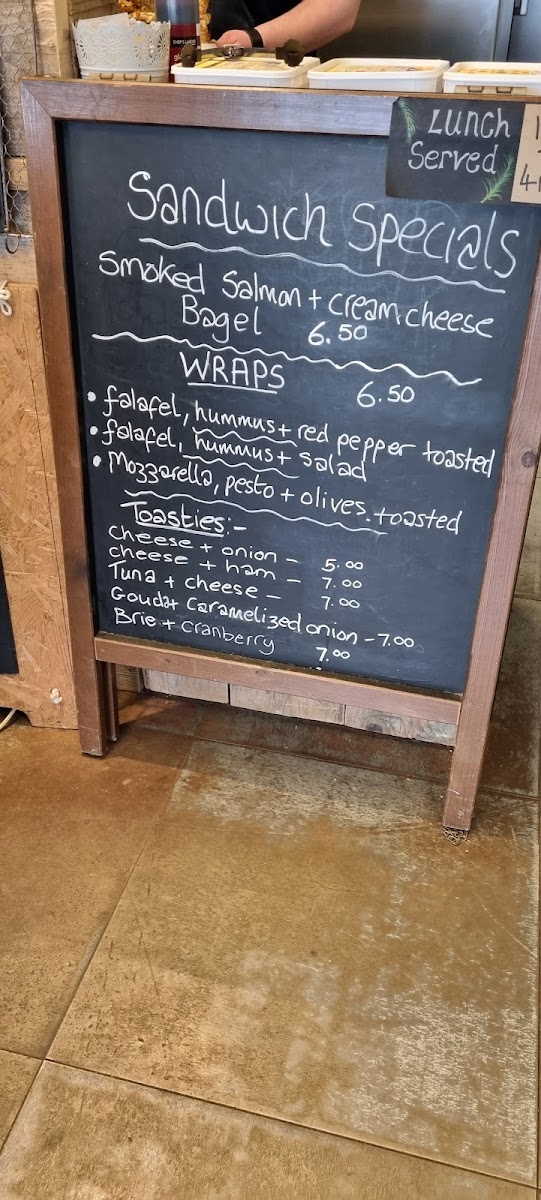 Lunch
Served
Sandwich Specials
Smoked Salmon + cream cheese
Bagel 6.50
WRAPS 6.50
• falafel, hummus + red pepper toasted
• falafel, hummus + salad
• Mozzarella, pesto + olives. toasted
Toasties:-
cheese + onion - 5.00
cheese + ham - 7.00
Tuna + cheese - 7.00
Gouda + Caramelized onion - 7.00
Brie + Cranberry 7.00